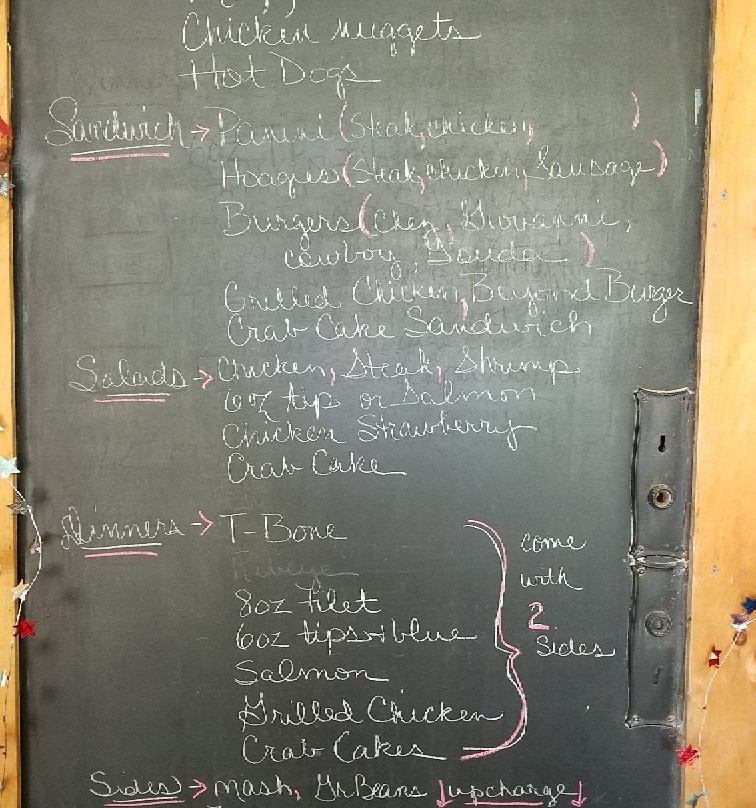 Chicken nuggets
Hot Dogs
Sandwich → Panini (Steak, chicken, )
Hoagies (Steak, chicken, Sausage)
Burgers (Chez, Giovanni,
cowboy, Gouda)
Grilled Chicken, Beyond Burger
Crab Cake Sandwich
Salads → Chicken, Steak, Shrimp
6oz tip or Salmon
Chicken Strawberry
Crab Cake
Dinners → T-Bone
Ribeye
8oz filet
6oz tips + blue
Salmon
Grilled Chicken
Crab Cakes
come
with
2
sides
Sides → mash, Gr Beans ↓upcharge↓